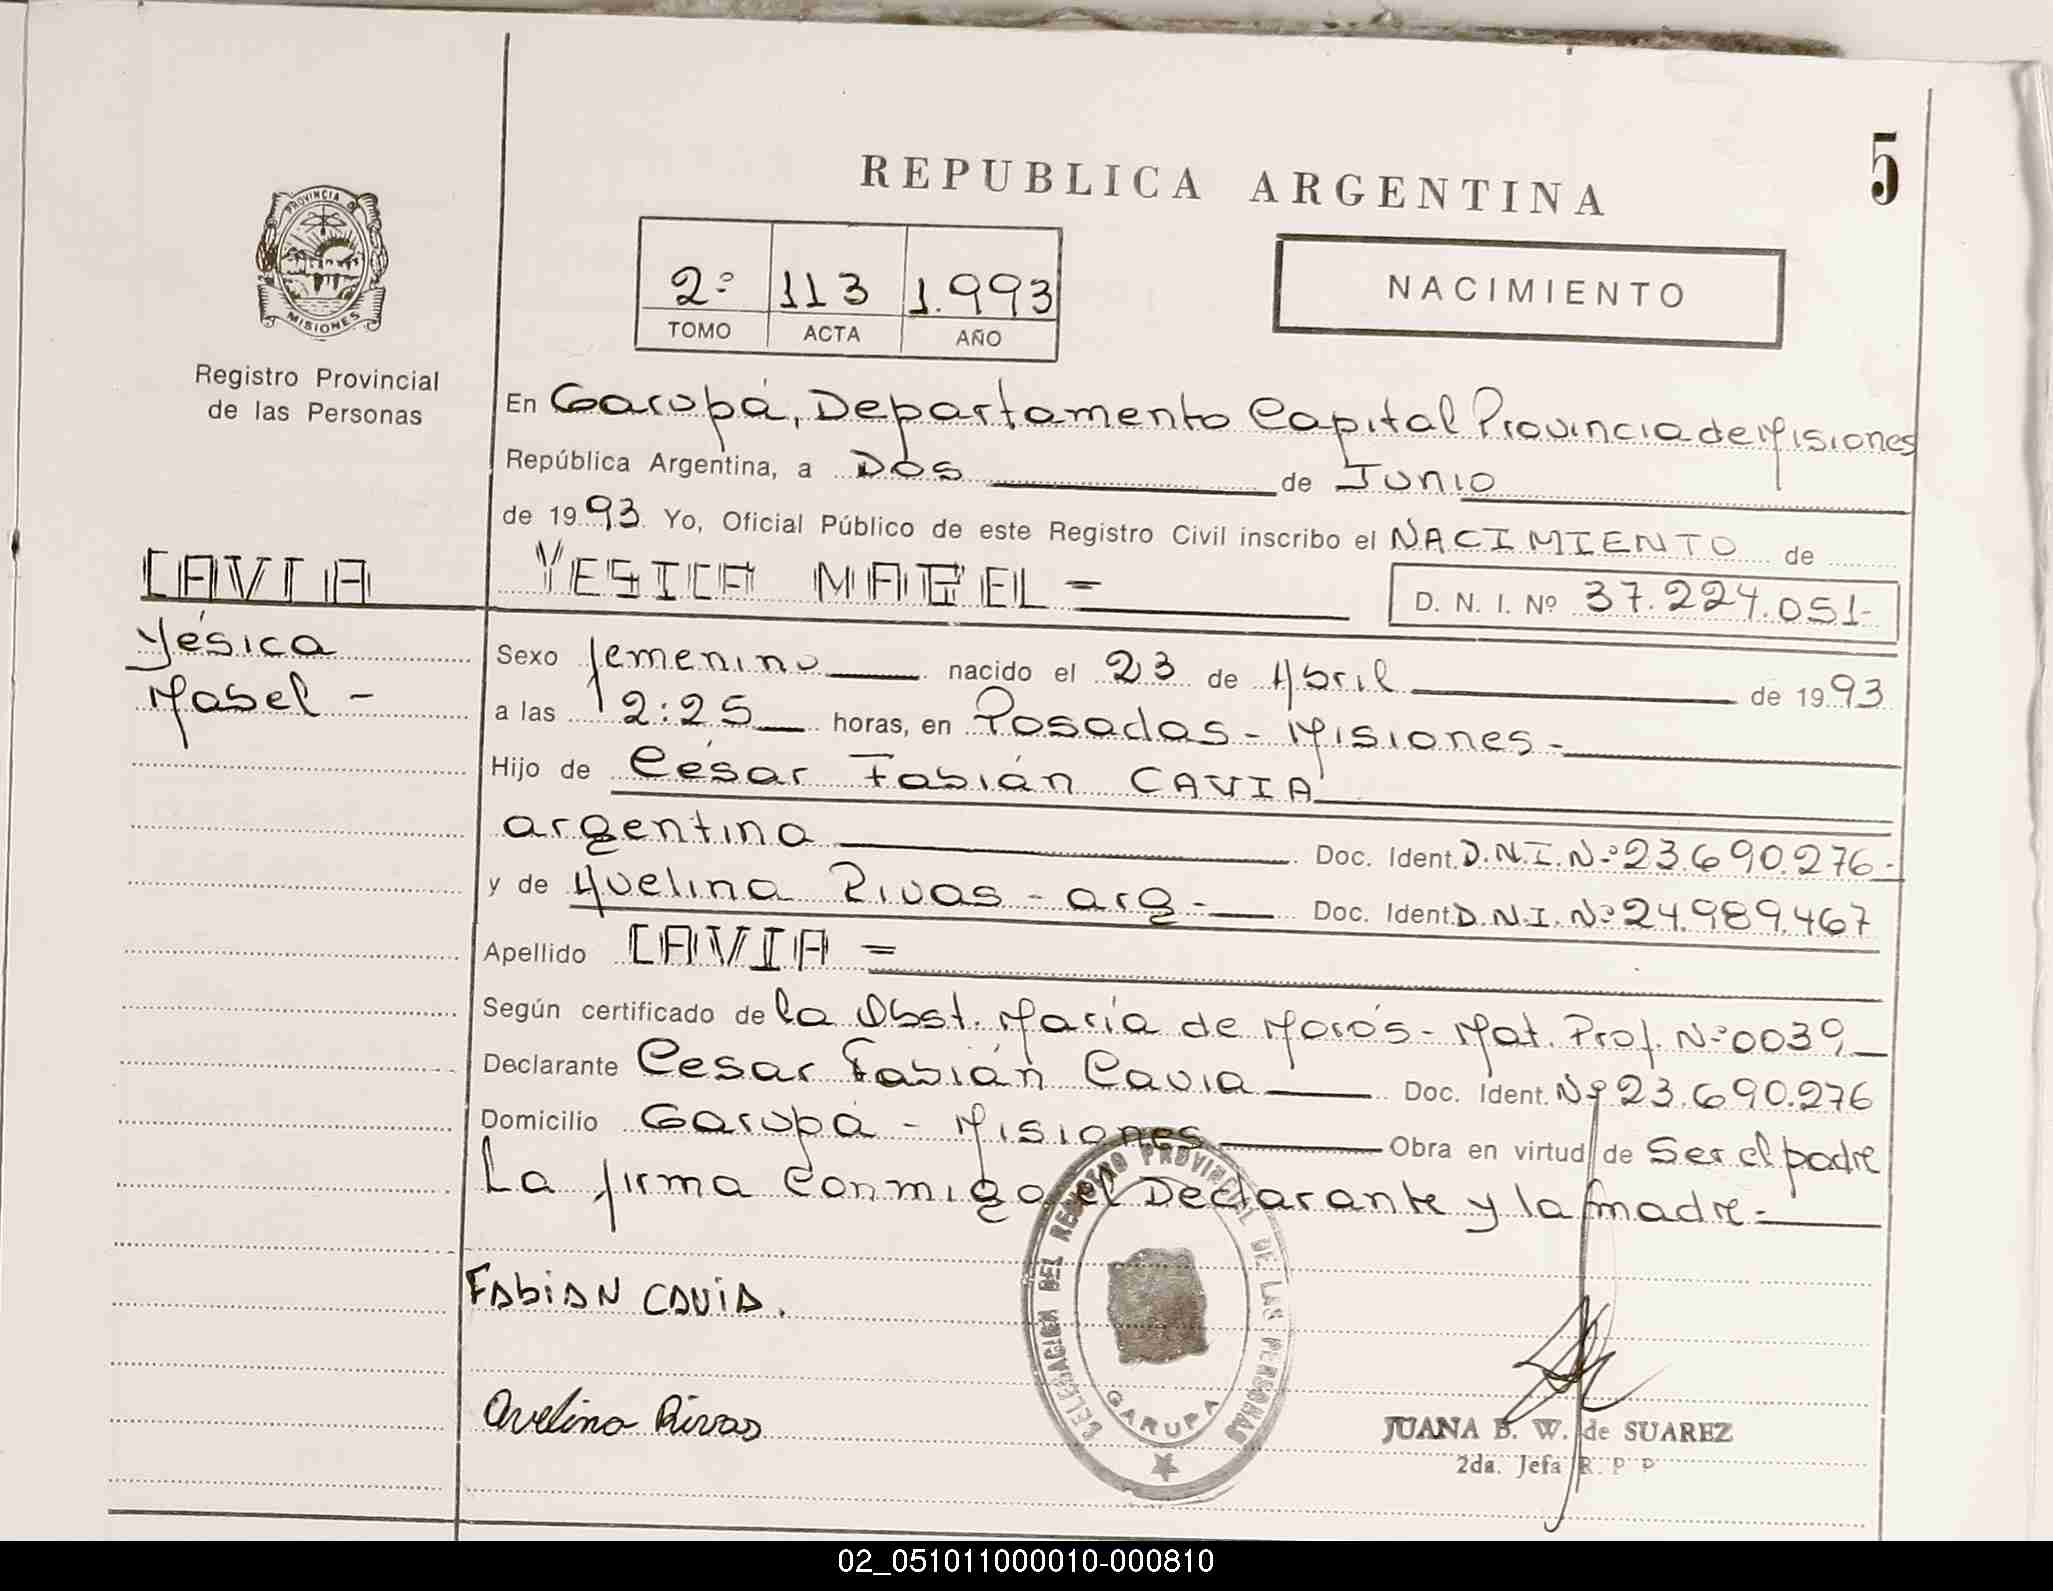 5
REPUBLICA ARGENTINA
PROVINCIA DE
MISIONES
Registro Provincial
de las Personas
2º 113 1.993
TOMO ACTA AÑO
NACIMIENTO
En Garupá, Departamento Capital Provincia de Misiones
República Argentina, a Dos de Junio
de 1993 Yo, Oficial Público de este Registro Civil inscribo el NACIMIENTO de
CAVIA
YESICA MABEL =
D. N. I. Nº 37.224.051-
Yésica
Mabel -
Sexo femenino nacido el 23 de Abril de 1993
a las 12:25 horas, en Posadas - Misiones -
Hijo de César Fabián CAVIA
argentina Doc. Ident. D.N.I. Nº 23.690.276-
y de Avelina Rivas - arg - Doc. Ident. D.N.I. Nº 24.989.467
Apellido CAVIA =
Según certificado de la Obst. María de Morós - Mat. Prof. Nº 0039
Declarante Cesar Fabián Cavia Doc. Ident. Nº 23.690.276
Domicilio Garupá - Misiones Obra en virtud de Ser el padre
La firma Conmigo el Declarante y la madre -
FABIAN CAVIA.
Avelina Rivas
DELEGACION DEL REGISTRO PROVINCIAL DE LAS PERSONAS
GARUPA
JUANA B. W. de SUAREZ
2da. Jefa R. P. P
02_051011000010-000810